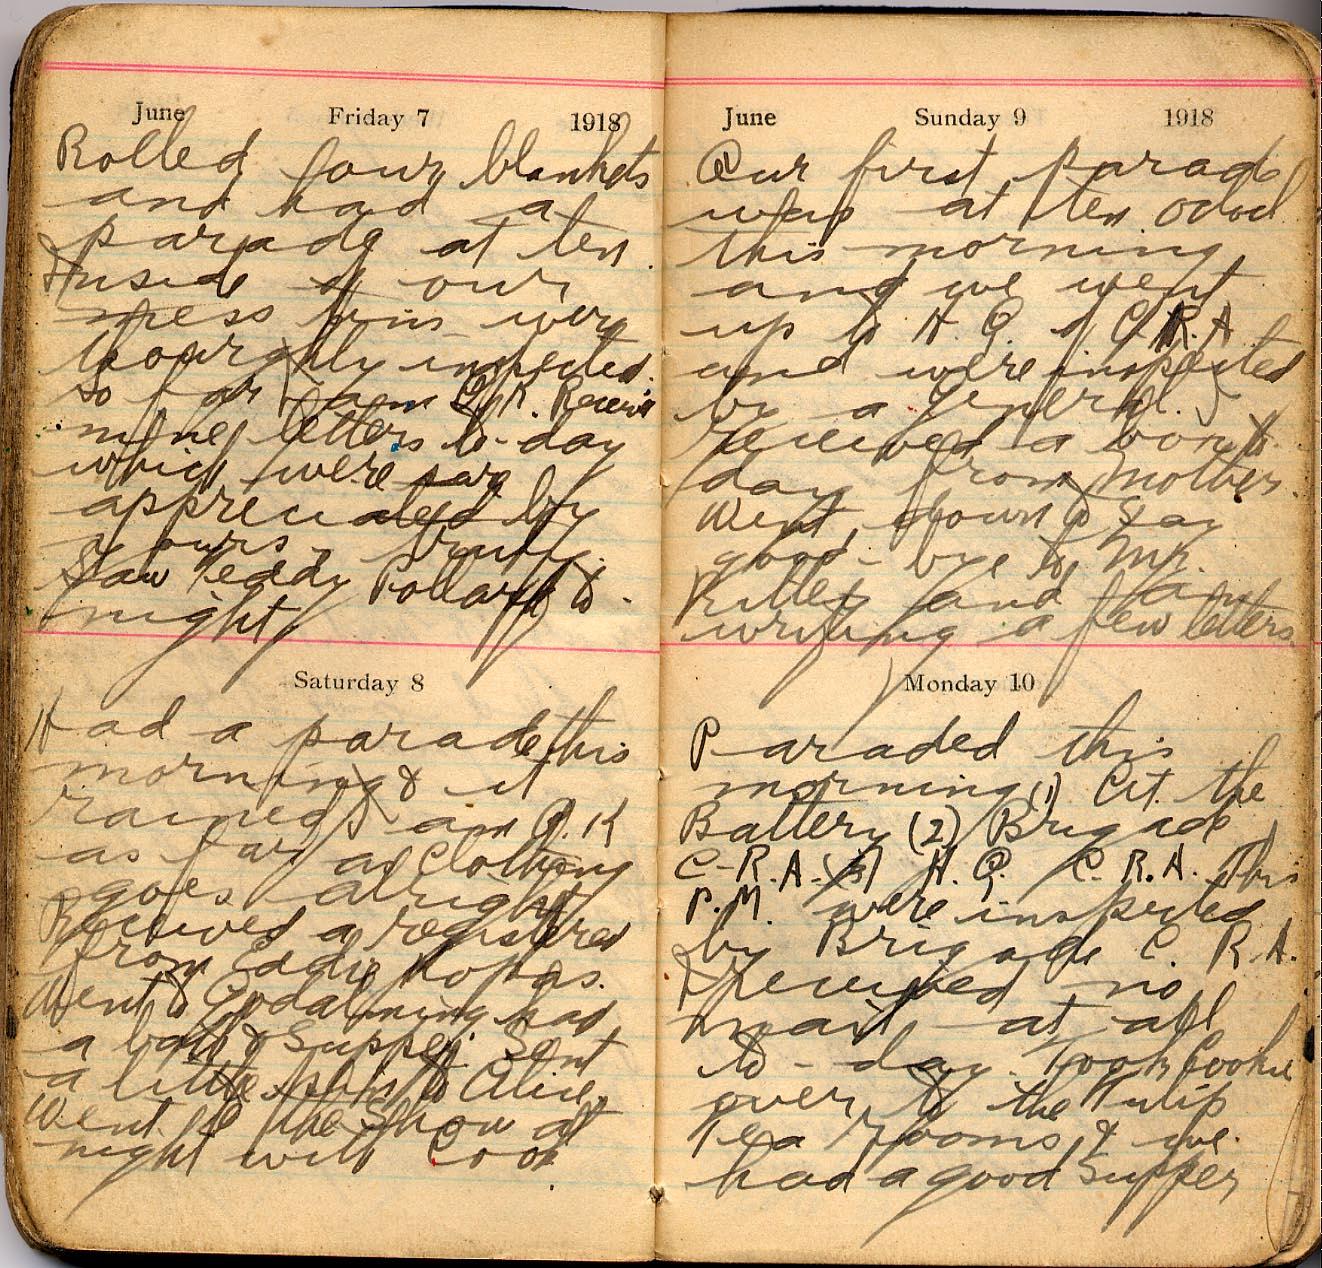 June Friday 7 1918
Rolled four blankets
and had a
parade at ten.
Inside of our
mess tins were
thoroughly inspected.
so far I am O.K. Receiv
nine letters to-day
which were
appreciated by
yours truly.
Saw Teddy Pollard to-
night
Saturday 8
Had a parade this
morning & it
rained I am O.K
as far as Clothing
goes alright
Received a registered
from Eddie
Went to Godalming had
a bath & Supper. Sent
a little to Alice,
Went to the Show at
night with Cook
June Sunday 9 1918
Our first parade
was at ten
this morning
and we went
up to H.Q. of C.R.A
and were inspected
by a General. I
received a box to-
day from Mother.
Went down to say
good-bye to Mr.
and am
writing a few letters
Monday 10
Paraded this
morning (1) At. the
Battery (2) Brigade
C.R.A. (3) H.Q. C.R.A. This
P.M. were inspected
by Brigade C.R.A.
I received no
mail at all
to-day. Took Cookie
over to the Tulip
Tea Rooms & we
had a good Supper